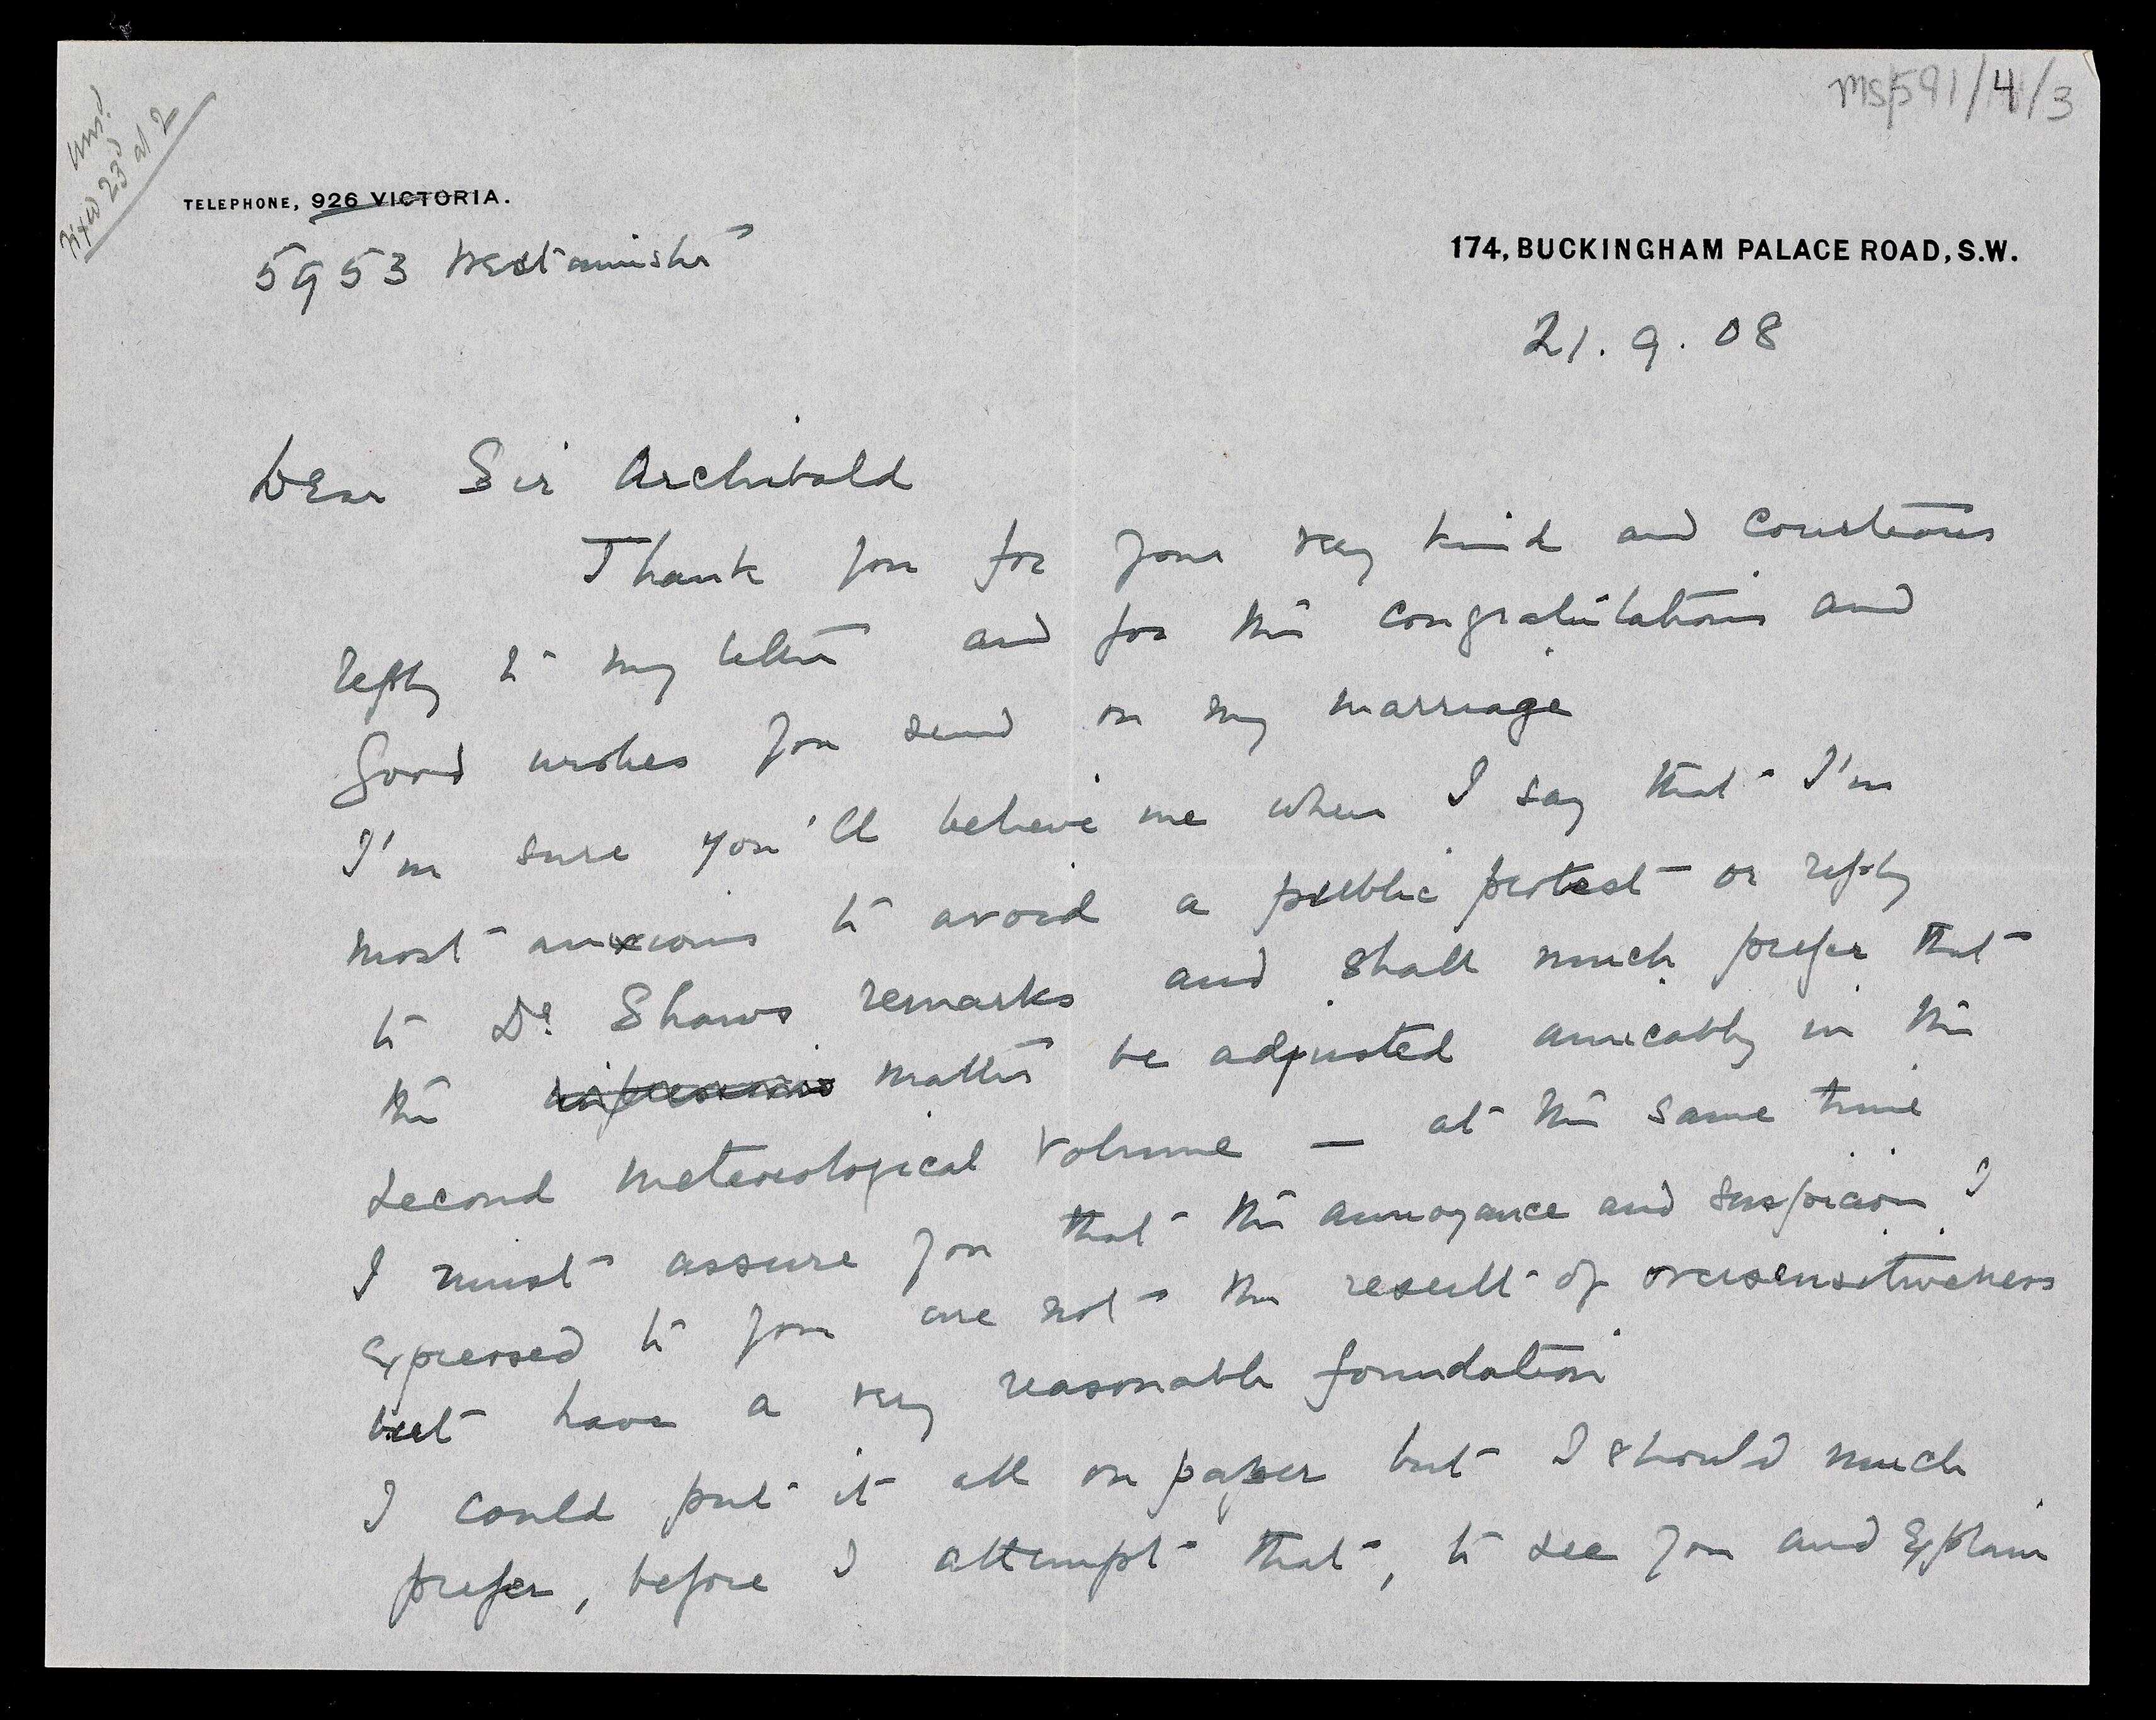 MS/591/4/3
Ans.d
Fixed 23d at 2
TELEPHONE, 926 VICTORIA.
5953 Westminster
174, BUCKINGHAM PALACE ROAD, S.W.
21. 9. 08
Dear Sir Archibald
Thank you for your very kind and courteous
reply to my letter and for the congratulations and
good wishes you send on my marriage
I'm sure you'll believe me when I say that I'm
most anxious to avoid a public protest or reply
to Dr. Shaws remarks and shall much prefer that
the matter be adjusted amicably in the
second meteorological volume — at the same time
I must assure you that the annoyance and suspicion I
expressed to you are not the result of oversensitiveness
but have a very reasonable foundation
I could put it all on paper but I should much
prefer, before I attempt that, to see you and explain